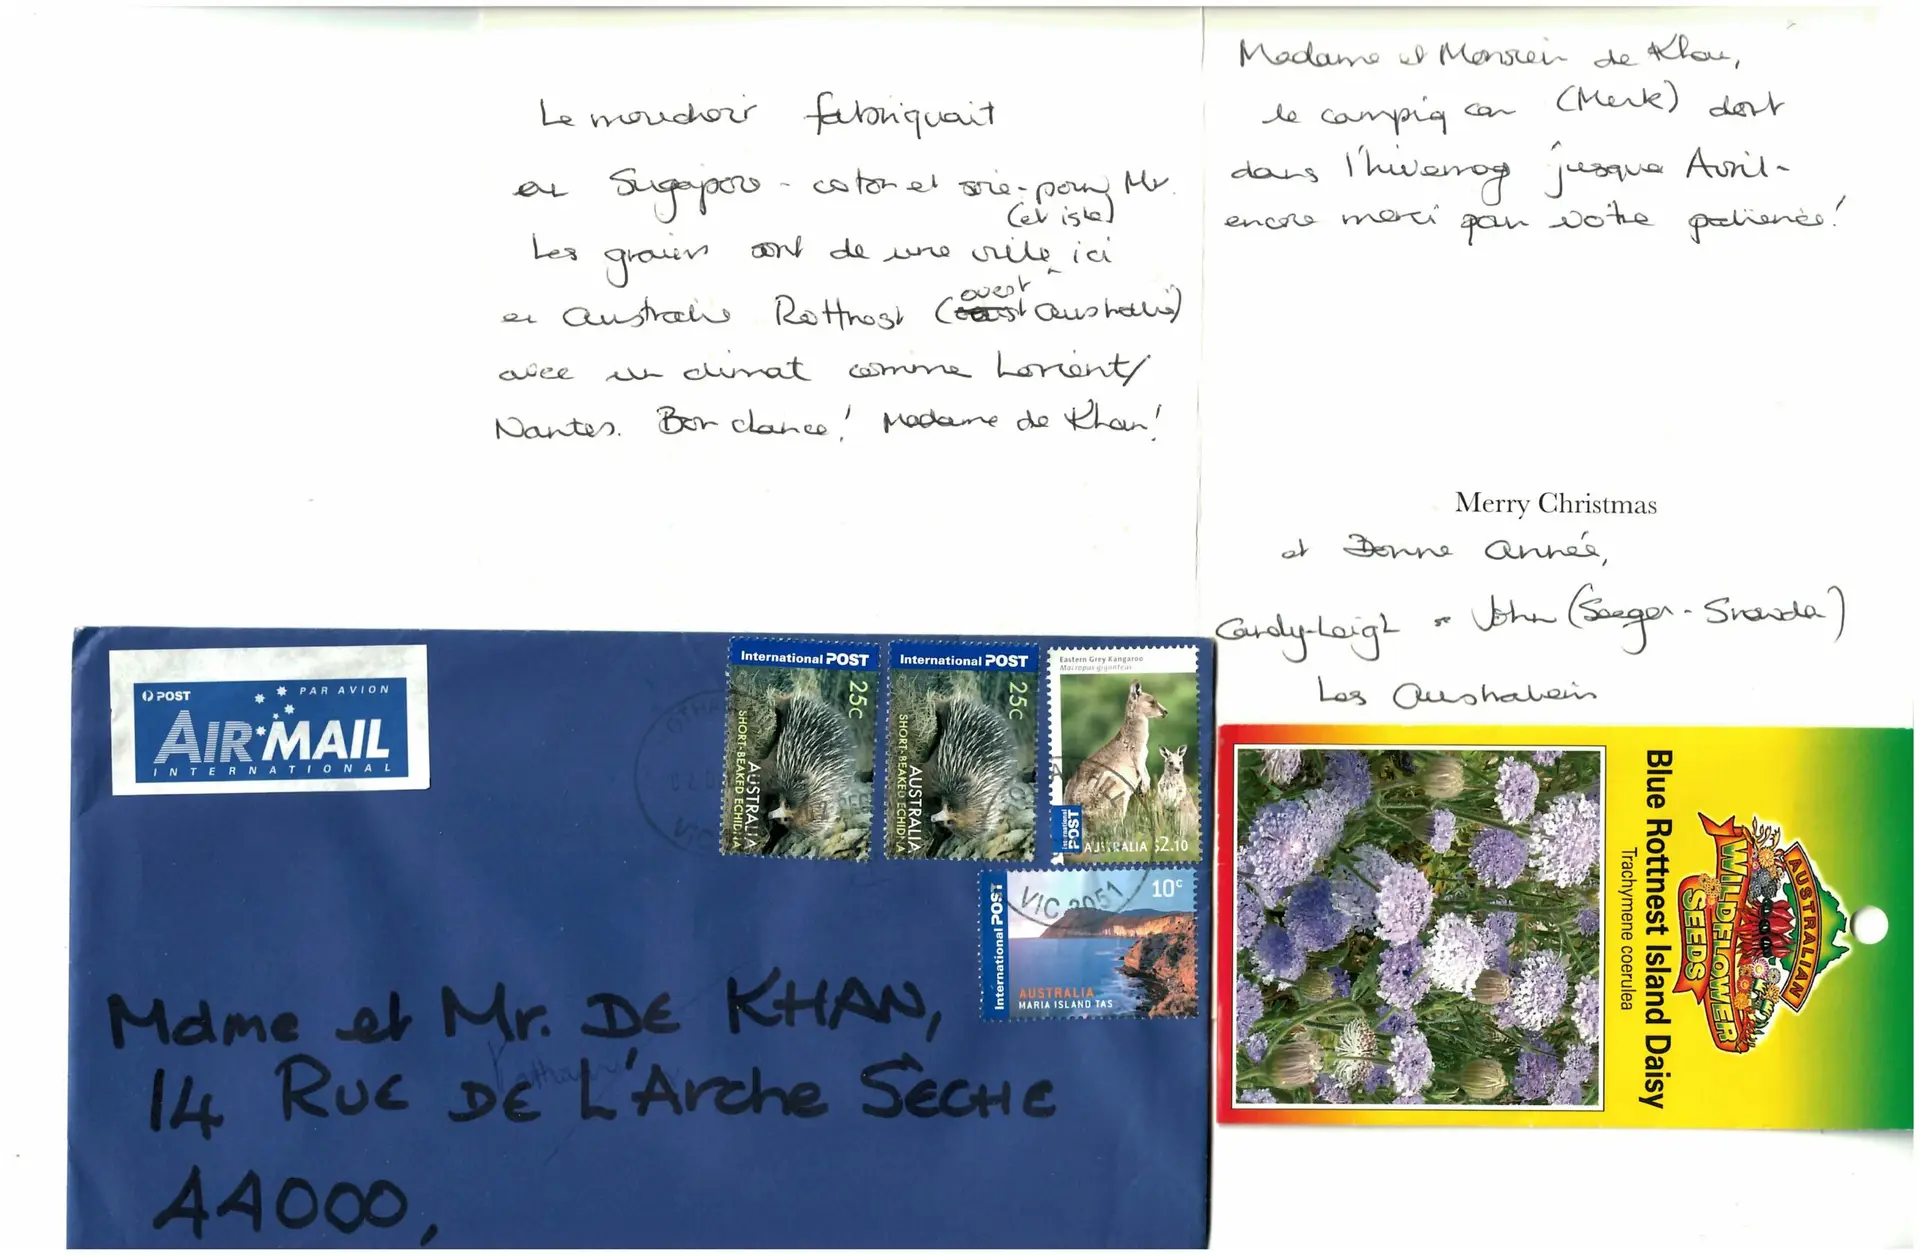 Le mouchoir fabriquait
en Singapore - coton et soie - pour Mr.
(et isle)
Les graines sont de une ville ici
ouest
en Australie Rottnest ( Australie)
avec un climat comme Lorient/
Nantes. Bon chance! Madame de Khan!
Madame et Monsieur de Khan,
le campig car (Merk) dort
dans l'hivernag jusque Avril -
encore merci par votre patience!
Merry Christmas
et Bonne Année,
Candy-Leigh & John (Seeger - )
Les Australiein
POST
PAR AVION
AIR MAIL
INTERNATIONAL
International POST
25c
AUSTRALIA
SHORT-BEAKED ECHIDNA
International POST
25c
AUSTRALIA
SHORT-BEAKED ECHIDNA
Eastern Grey Kangaroo
Macropus giganteus
POST
International
AUSTRALIA $2.10
VIC 3051
International POST
10c
AUSTRALIA
MARIA ISLAND TAS
Mdme et Mr. DE KHAN,
14 RUE DE L'Arche SÊCHE
44000,
Blue Rottnest Island Daisy
Trachymene coerulea
AUSTRALIAN
WILDFLOWER
SEEDS